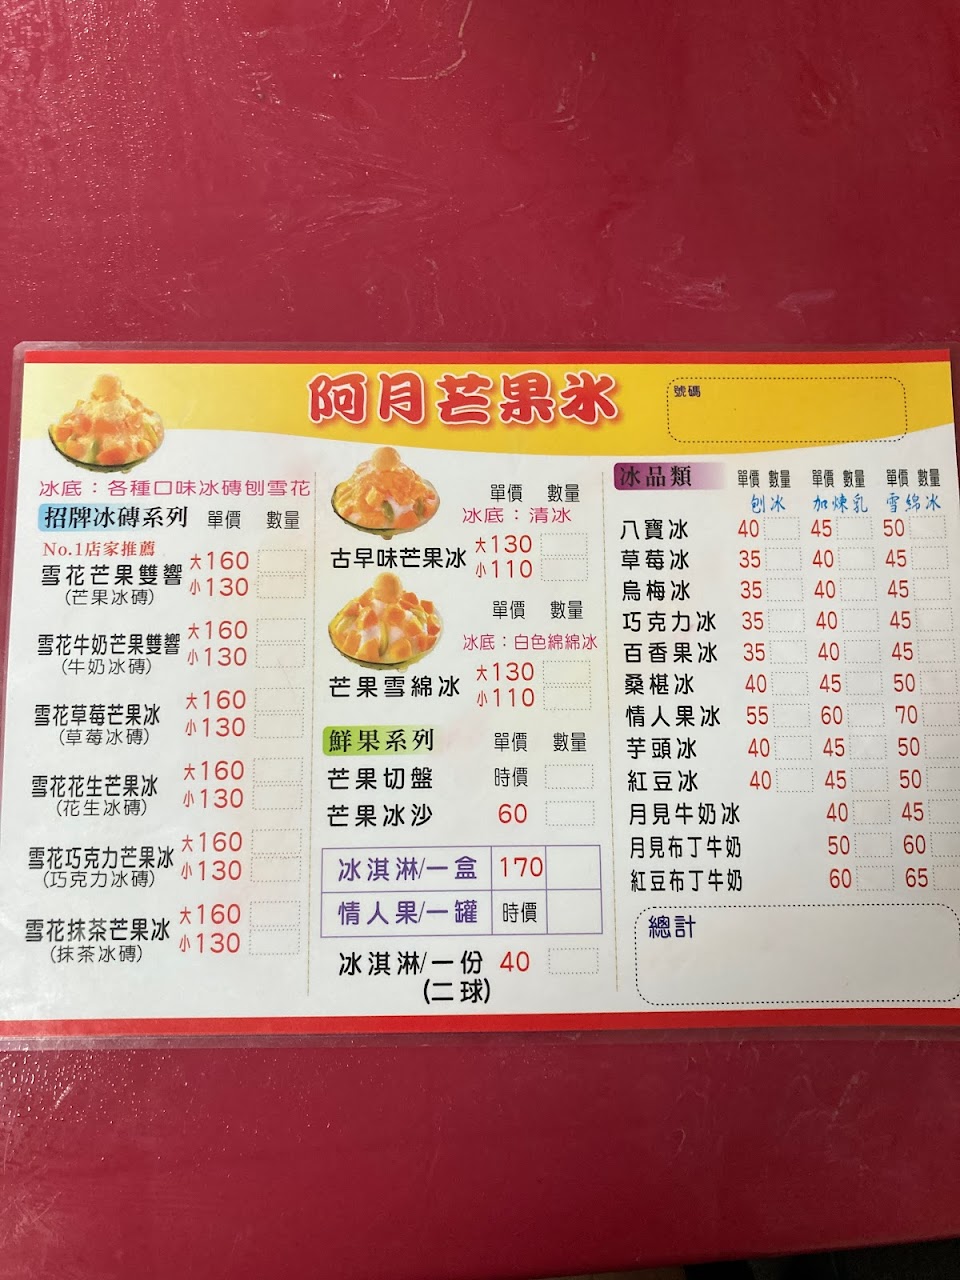 阿月芒果冰
號碼
冰底：各種口味冰磚刨雪花
招牌冰磚系列 單價 數量
No.1店家推薦
雪花芒果雙響 大160
(芒果冰磚) 小130
雪花牛奶芒果雙響 大160
(牛奶冰磚) 小130
雪花草莓芒果冰 大160
(草莓冰磚) 小130
雪花花生芒果冰 大160
(花生冰磚) 小130
雪花巧克力芒果冰 大160
(巧克力冰磚) 小130
雪花抹茶芒果冰 大160
(抹茶冰磚) 小130
單價 數量
冰底：清冰
古早味芒果冰 大130
小110
單價 數量
冰底：白色綿綿冰
芒果雪綿冰 大130
小110
鮮果系列 單價 數量
芒果切盤 時價
芒果冰沙 60
冰淇淋/一盒 170
情人果/一罐 時價
冰淇淋/一份 40
(二球)
冰品類 單價 數量 單價 數量 單價 數量
刨冰 加煉乳 雪綿冰
八寶冰 40 45 50
草莓冰 35 40 45
烏梅冰 35 40 45
巧克力冰 35 40 45
百香果冰 35 40 45
桑椹冰 40 45 50
情人果冰 55 60 70
芋頭冰 40 45 50
紅豆冰 40 45 50
月見牛奶冰 40 45
月見布丁牛奶 50 60
紅豆布丁牛奶 60 65
總計